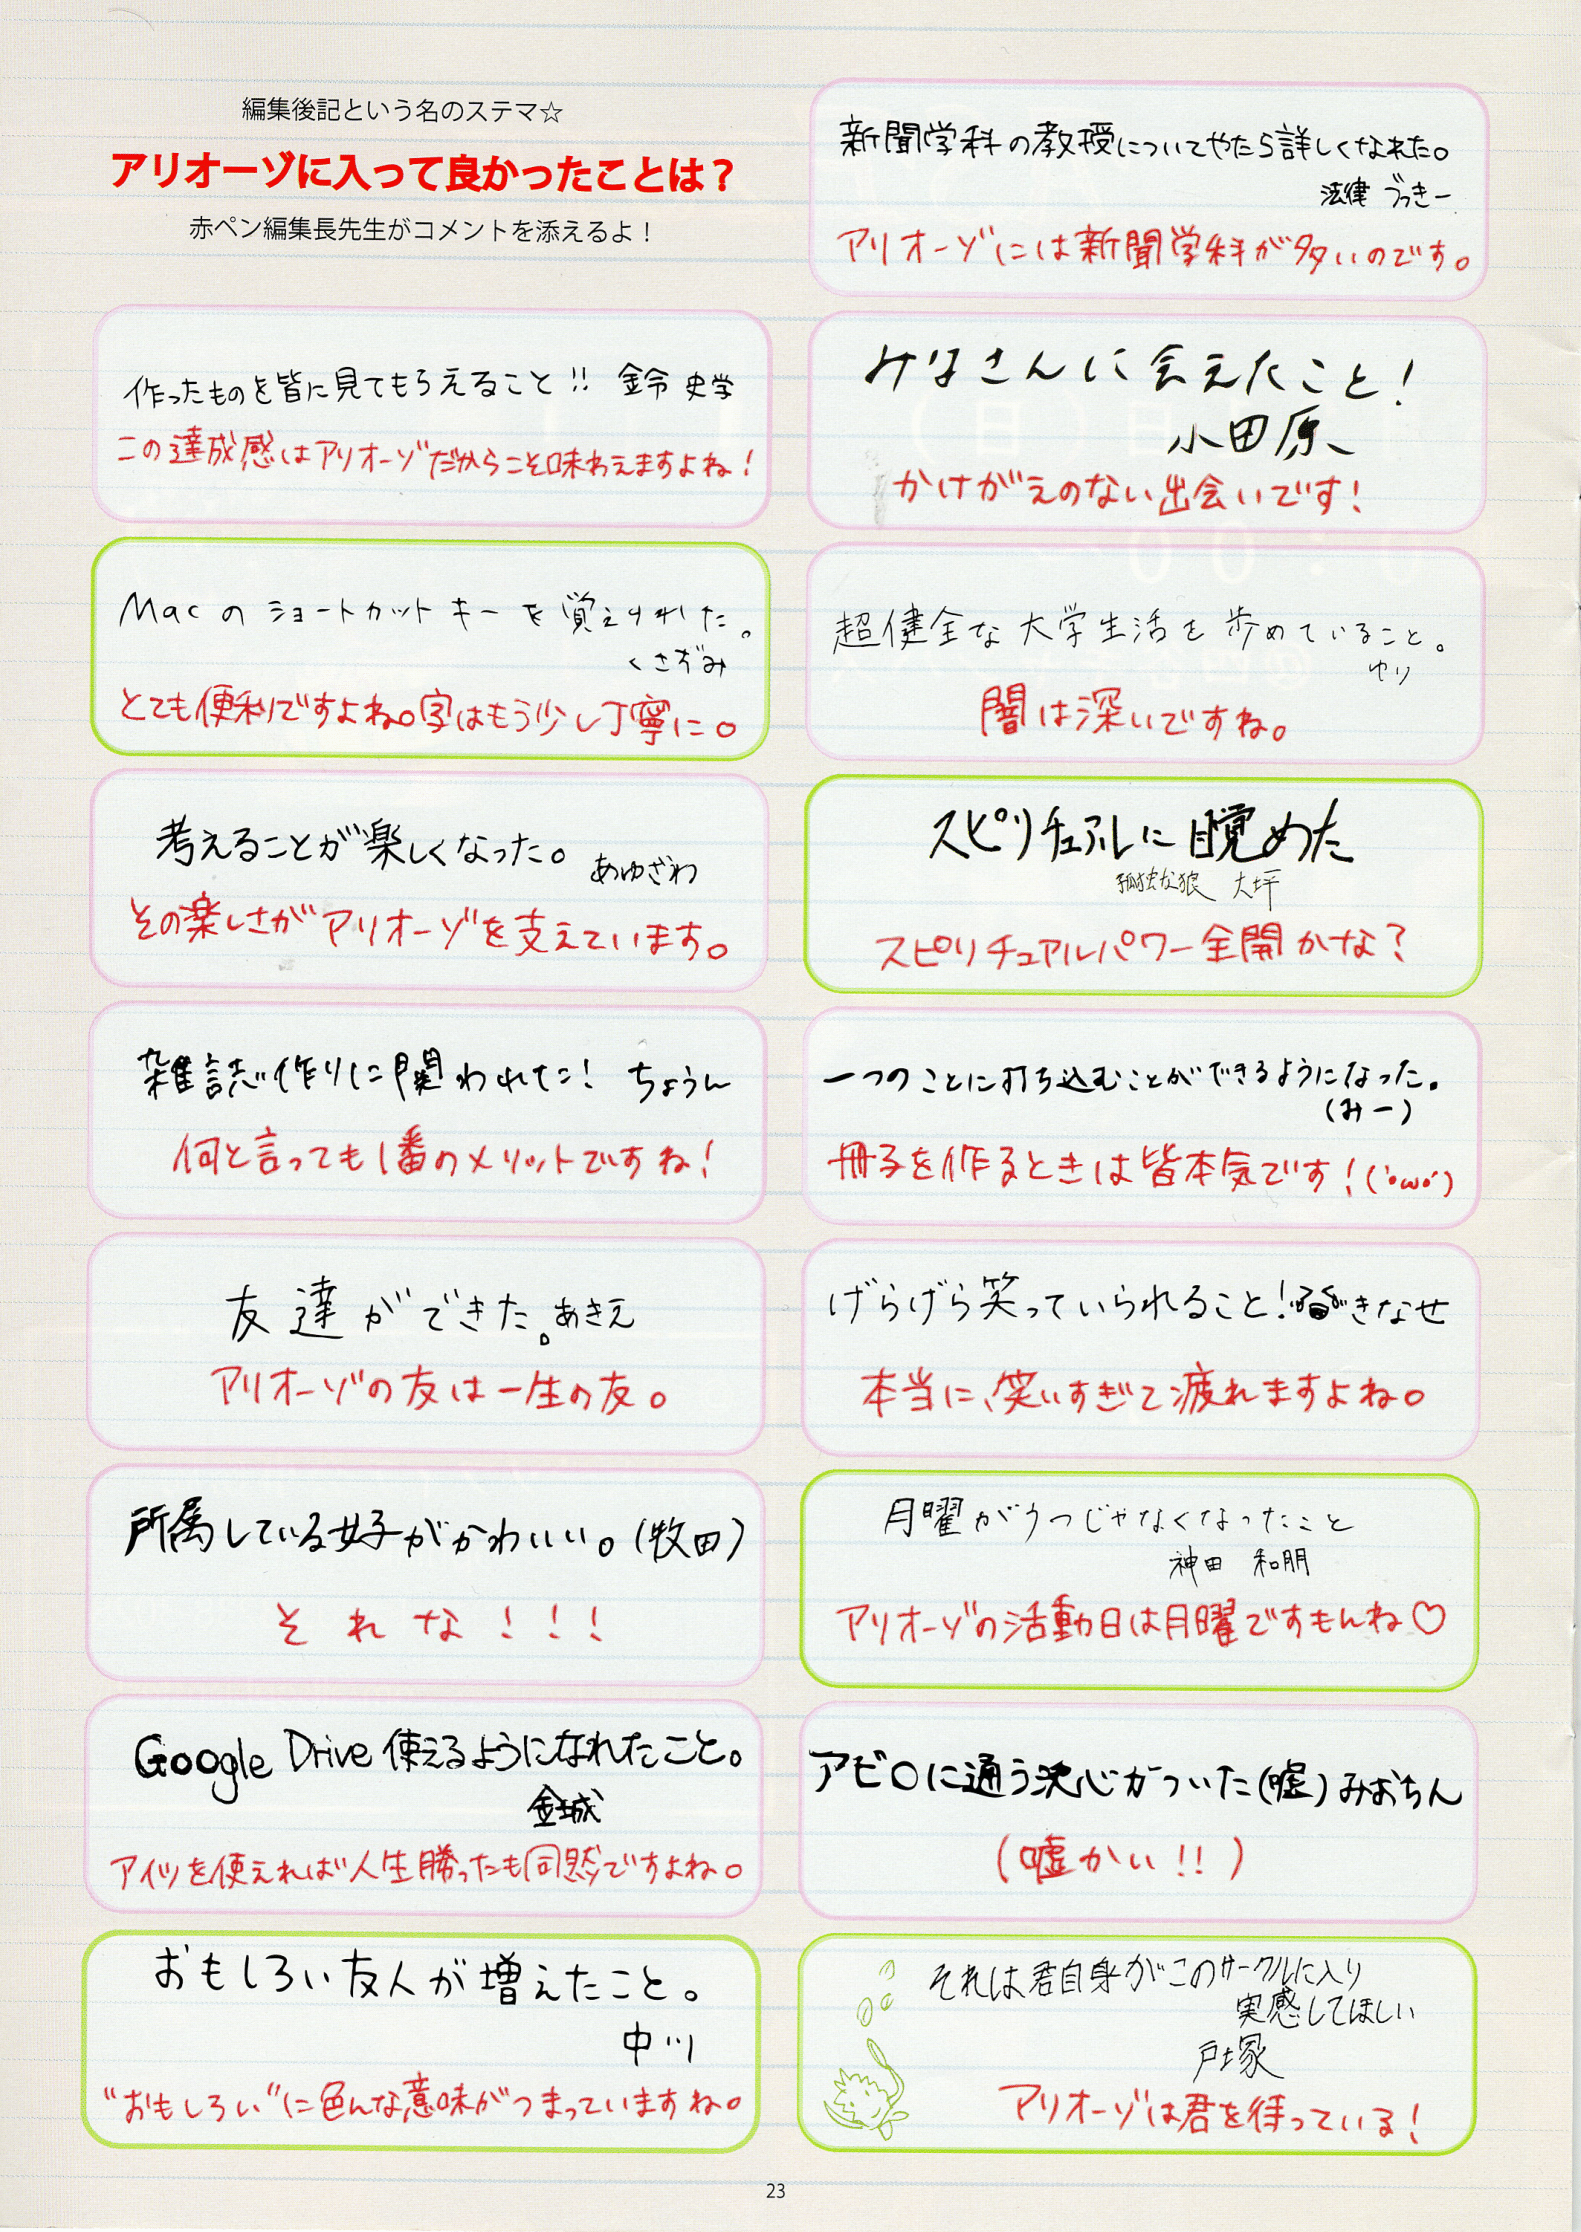 編集後記という名のステマ☆
アリオーゾに入って良かったことは？
赤ペン編集長先生がコメントを添えるよ！
作ったものを皆に見てもらえること!! 鈴 史学
この達成感はアリオーゾだからこそ味わえますよね！
Macのショートカットキーを覚えられた。
くさずみ
とても便利ですよね。字はもう少し丁寧に。
考えることが楽しくなった。 あゆざわ
その楽しさがアリオーゾを支えています。
雑誌作りに関われた！ ちょうん
何と言っても1番のメリットですね！
友達ができた。あきえ
アリオーゾの友は一生の友。
所属している女子がかわいい。(牧田)
それな！！！
Google Drive使えるようになれたこと。
金城
アイツを使えれば人生勝ったも同然ですよね。
おもしろい友人が増えたこと。
中川
“おもしろい”に色んな意味がつまっていますね。
新聞学科の教授についてやたら詳しくなれた。
法律 づっきー
アリオーゾには新聞学科が多いのです。
みなさんに会えたこと！
小田原
かけがえのない出会いです！
超健全な大学生活を歩めていること。
ゆり
闇は深いですね。
スピリチュアルに目覚めた
孤独な狼 大坪
スピリチュアルパワー全開かな？
一つのことに打ち込むことができるようになった。
(みー)
冊子を作るときは皆本気です！(｀・ω・´)
げらげら笑っていられること！きなせ
本当に、笑いすぎて疲れますよね。
月曜がうつじゃなくなったこと
神田 和朋
アリオーゾの活動日は月曜ですもんね♡
アビ〇に通う決心がついた(嘘)みおちん
(嘘かい!!)
それは君自身がこのサークルに入り
実感してほしい
戸塚
アリオーゾは君を待っている！
23